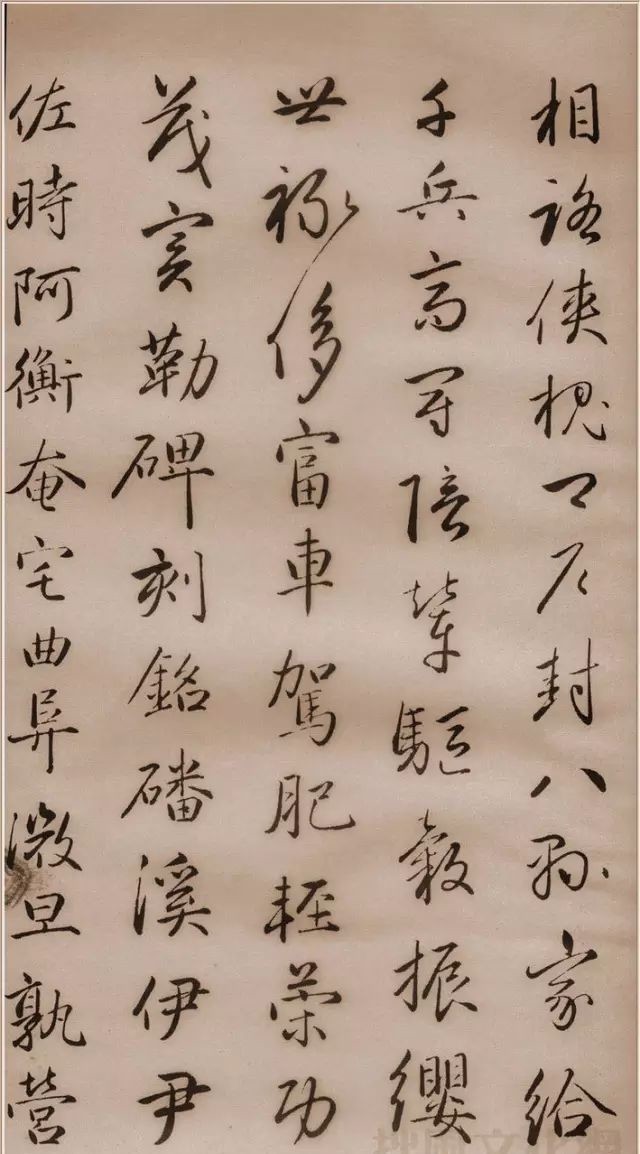 相路俠槐卿户封八縣家給
千兵高冠陪輦驅轂振纓
世祿侈富車駕肥輕策功
茂實勒碑刻銘磻溪伊尹
佐時阿衡奄宅曲阜微旦孰營